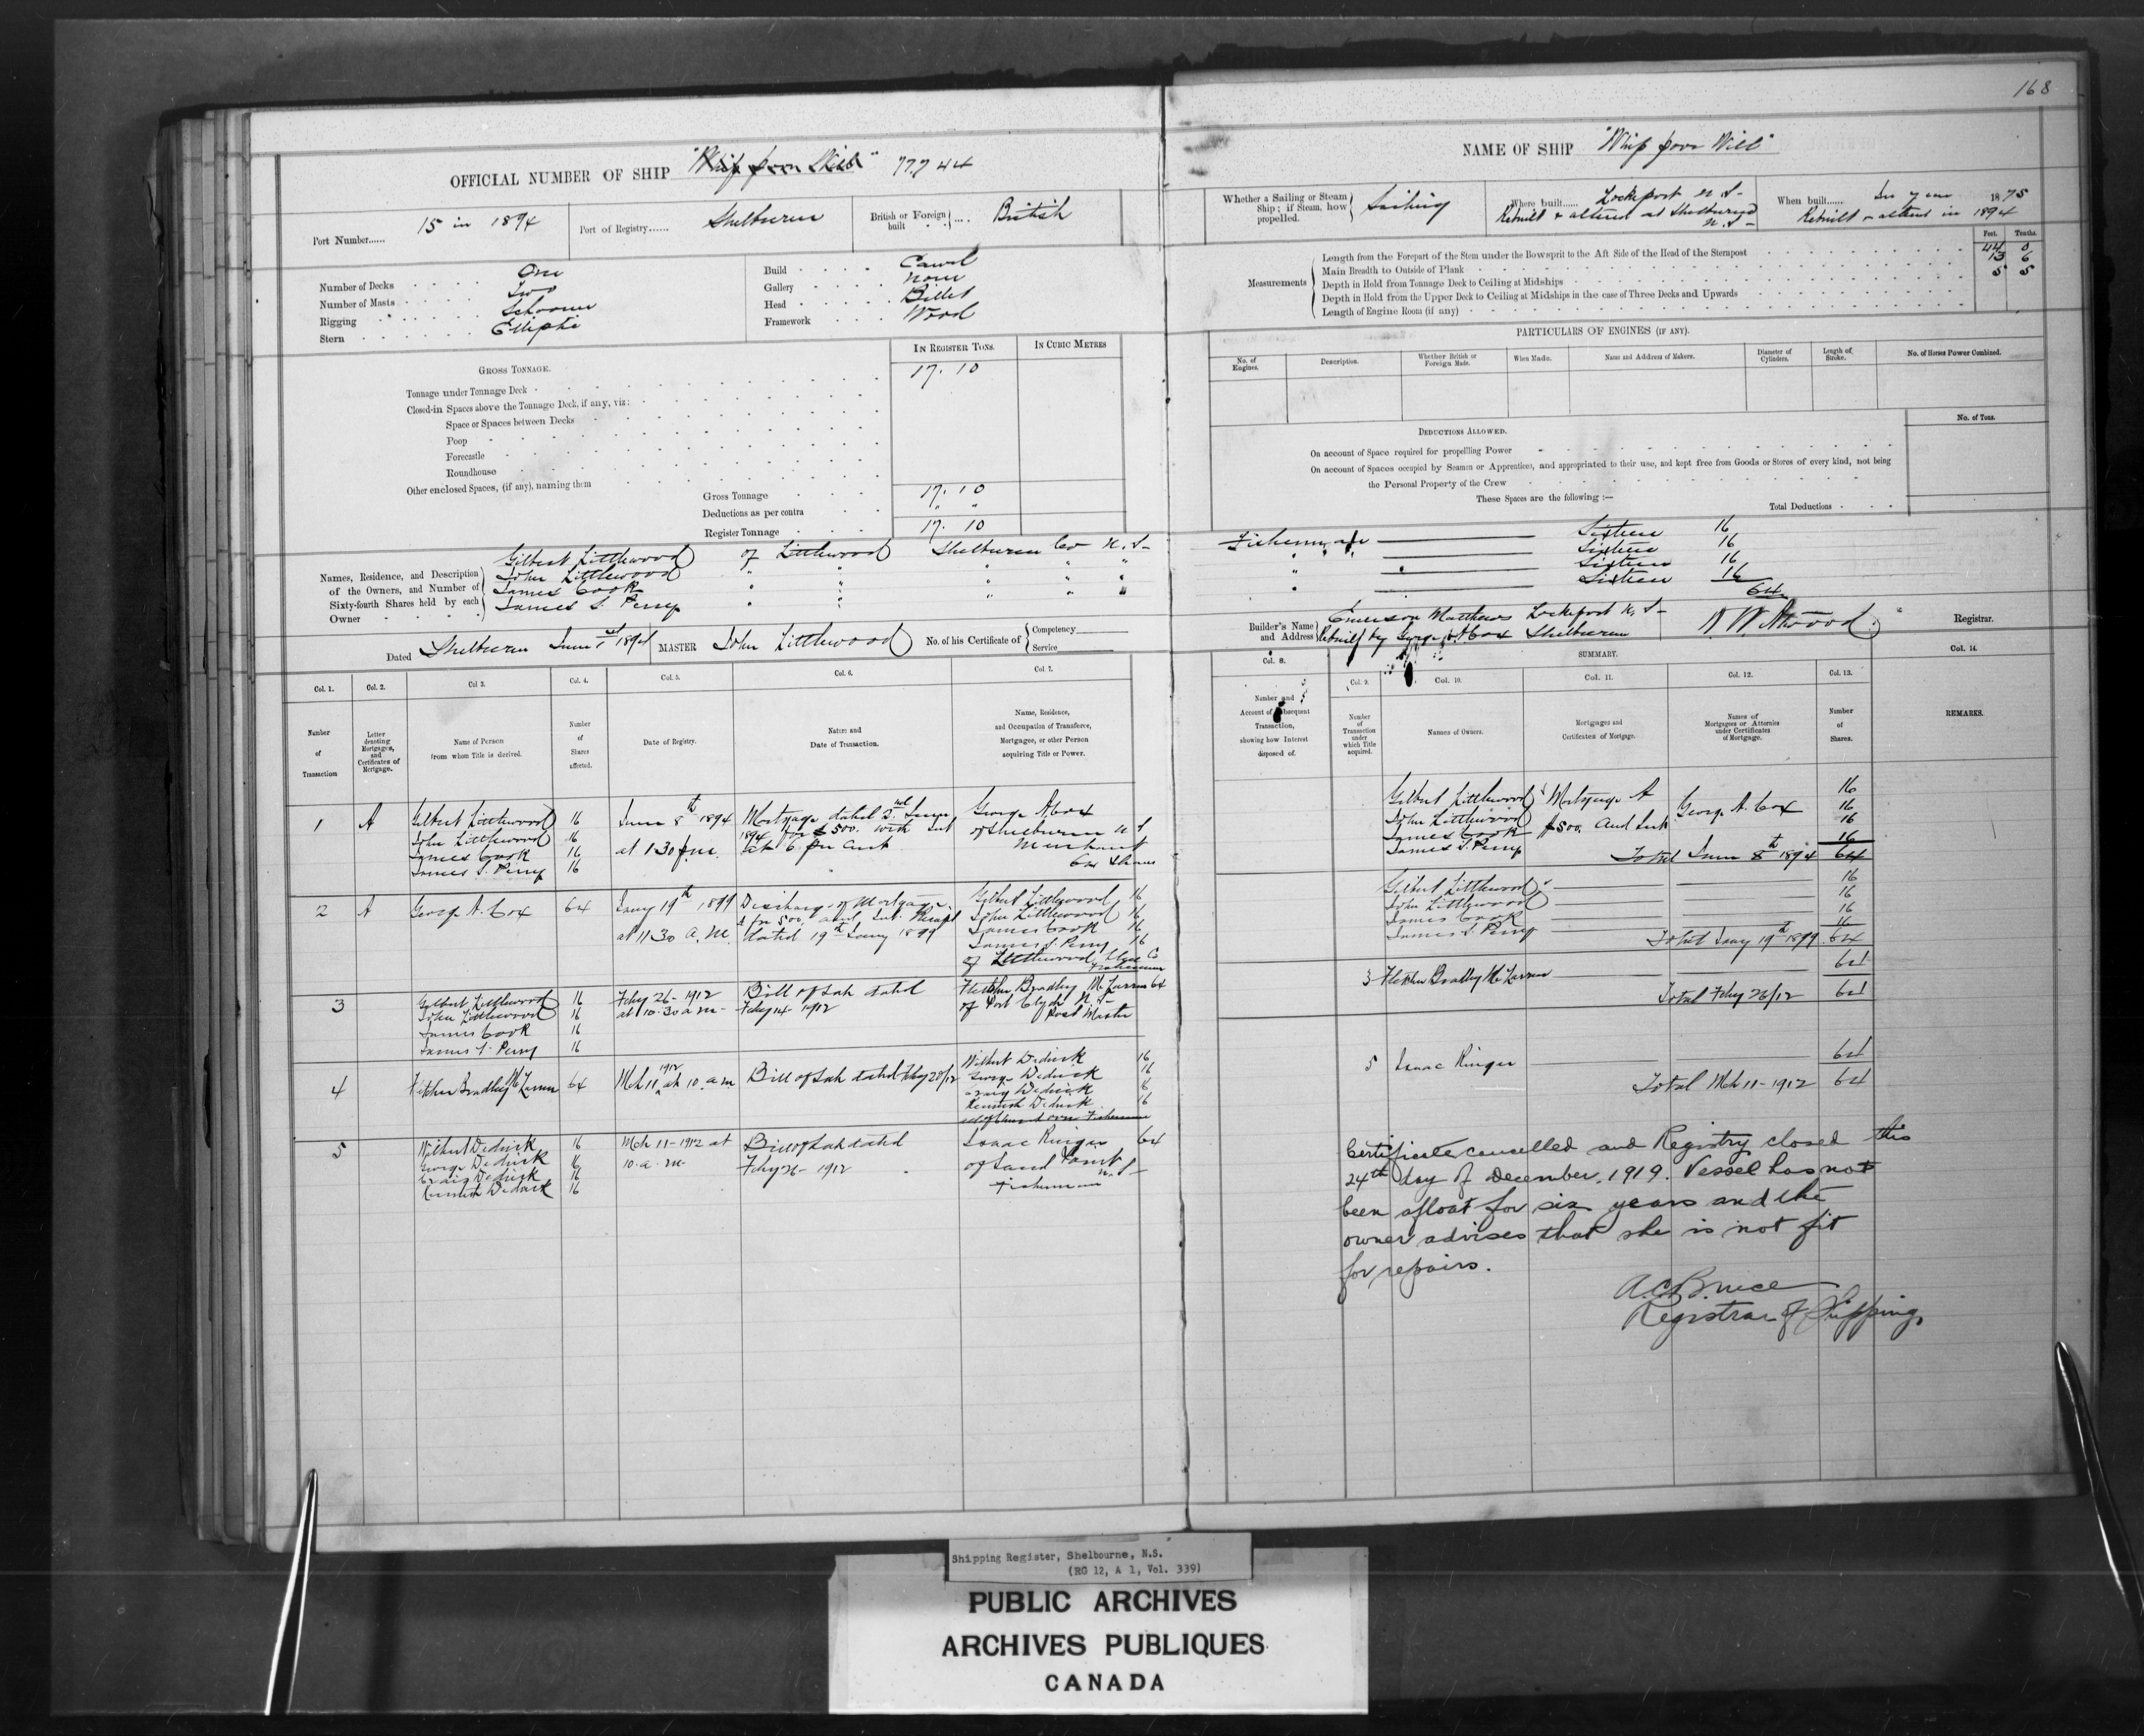 168
OFFICIAL NUMBER OF SHIP "Whip poor Will" 77,744
Port Number...... 15 in 1894
Port of Registry...... Shelburne
British or Foreign built .... British
Number of Decks One
Number of Masts Two
Rigging Schooner
Stern Elliptic
Build Carvel
Gallery None
Head Billet
Framework Wood
GROSS TONNAGE.
IN REGISTER TONS.
IN CUBIC METRES
Tonnage under Tonnage Deck 17. 10
Closed-in Spaces above the Tonnage Deck, if any, viz:
Space or Spaces between Decks
Poop
Forecastle
Roundhouse
Other enclosed Spaces, (if any), naming them
Gross Tonnage 17. 10
Deductions as per contra " "
Register Tonnage 17. 10
Names, Residence, and Description of the Owners, and Number of Sixty-fourth Shares held by each Owner
Gilbert Littlewood of Littlewood Shelburne Co N.S-
John Littlewood " " " " "
James Cook " " " " "
James S. Perry " "
Dated Shelburne June 1st 1894
MASTER John Littlewood
No. of his Certificate of { Competency Service
Col. 1. Col. 2. Col 3. Col. 4. Col. 5. Col. 6. Col. 7.
Number of Transaction
Letter denoting Mortgages, and Certificates of Mortgage.
Name of Person from whom Title is derived.
Number of Shares affected.
Date of Registry.
Nature and Date of Transaction.
Name, Residence, and Occupation of Transferee, Mortgagee, or other Person acquiring Title or Power.
1 A Gilbert Littlewood 16 June 8th 1894 Mortgage dated 2nd June George A. Cox
John Littlewood 16 1894 for $500. with Int of Shelburne N S
James Cook 16 at 1.30 p.m. at 6 per cent Merchant
James S. Perry 16 64 Shares
2 A George A. Cox 64 Jany 19th 1899 Discharge of Mortgage Gilbert Littlewood 16
A for 500. and Int. Receipt John Littlewood 16
at 11.30 a.m. dated 19th Jany 1899 James Cook 16
James S. Perry 16
of Littlewood
Fishermen
3 Gilbert Littlewood 16 Feby 26- 1912 Bill of Sale dated Fletcher Bradley McLarren 64
John Littlewood 16 at 10.30 a m- Feby 14 1912 of Port Clyde N.S-
James Cook 16 Post Master
James S. Perry 16
4 Fletcher Bradley McLarren 64 Mch 11, 1912 at 10. a m Bill of Sale dated Feby 20/12 Wilbert Dedrick 16
George Dedrick 16
Craig Dedrick
Kenneth Dedrick 16
Fishermen
5 Wilbert Dedrick 16 Mch 11- 1912 at Bill of Sale dated Isaac Ringer 64
George Dedrick 16 10. a. m- Feby 26- 1912 of Sand Point N.S-
Craig Dedrick 16 Fisherman
Kenneth Dedrick 16
NAME OF SHIP "Whip poor Will"
Whether a Sailing or Steam Ship; if Steam, how propelled. Sailing
Where built...... Lockeport N.S-
Rebuilt & altered at Shelburne N.S-
When built...... In year 1875
Rebuilt & altered in 1894
Feet. Tenths.
Measurements
Length from the Forepart of the Stem under the Bowsprit to the Aft Side of the Head of the Sternpost 44 0
Main Breadth to Outside of Plank 13 6
Depth in Hold from Tonnage Deck to Ceiling at Midships 5 5
Depth in Hold from the Upper Deck to Ceiling at Midships in the case of Three Decks and Upwards
Length of Engine Room (if any)
PARTICULARS OF ENGINES (IF ANY).
No. of Engines.
Description.
Whether British or Foreign Made.
When Made.
Name and Address of Makers.
Diameter of Cylinders.
Length of Stroke.
No. of Horses Power Combined.
DEDUCTIONS ALLOWED.
No. of Tons.
On account of Space required for propellling Power
On account of Spaces occupied by Seamen or Apprentices, and appropriated to their use, and kept free from Goods or Stores of every kind, not being
the Personal Property of the Crew
These Spaces are the following :—
Total Deductions
Fisherman Sixteen 16
" Sixteen 16
" Sixteen 16
" Sixteen 16
64
Builder's Name and Address
Emerson Matthews Lockeport N.S-
Rebuilt by George A Cox Shelburne
W W Atwood Registrar.
Col. 8. SUMMARY. Col. 14.
Col. 9. Col. 10. Col. 11. Col. 12. Col. 13.
Number and Account of Subsequent Transaction, showing how Interest disposed of.
Number of Transaction under which Title acquired.
Names of Owners.
Mortgages and Certificates of Mortgage.
Names of Mortgagees or Attornies under Certificates of Mortgage.
Number of Shares.
REMARKS.
Gilbert Littlewood Mortgage A 16
John Littlewood George A. Cox 16
James Cook $500. and Int 16
James S. Perry 16
Total June 8th 1894 64
Gilbert Littlewood 16
John Littlewood 16
James Cook 16
James S. Perry 16
Total Jany 19th 1899 64
3 Fletcher Bradley McLarren 64
Total Feby 26/12 64
5 Isaac Ringer 64
Total Mch 11- 1912 64
Certificate cancelled and Registry closed this
24th day of December, 1919. Vessel has not
been afloat for six years and the
owner advises that she is not fit
for repairs.
A.C. Bruce
Registrar of Shipping.
Shipping Register, Shelbourne, N.S.
(RG 12, A 1, Vol. 339)
PUBLIC ARCHIVES
ARCHIVES PUBLIQUES
CANADA